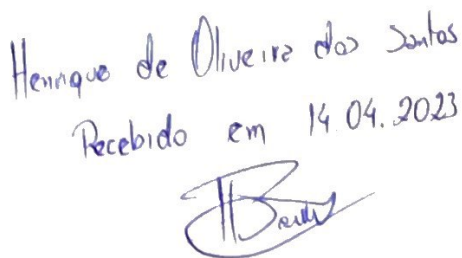 Henrique de Oliveira dos Santos
Recebido em 14.04.2023